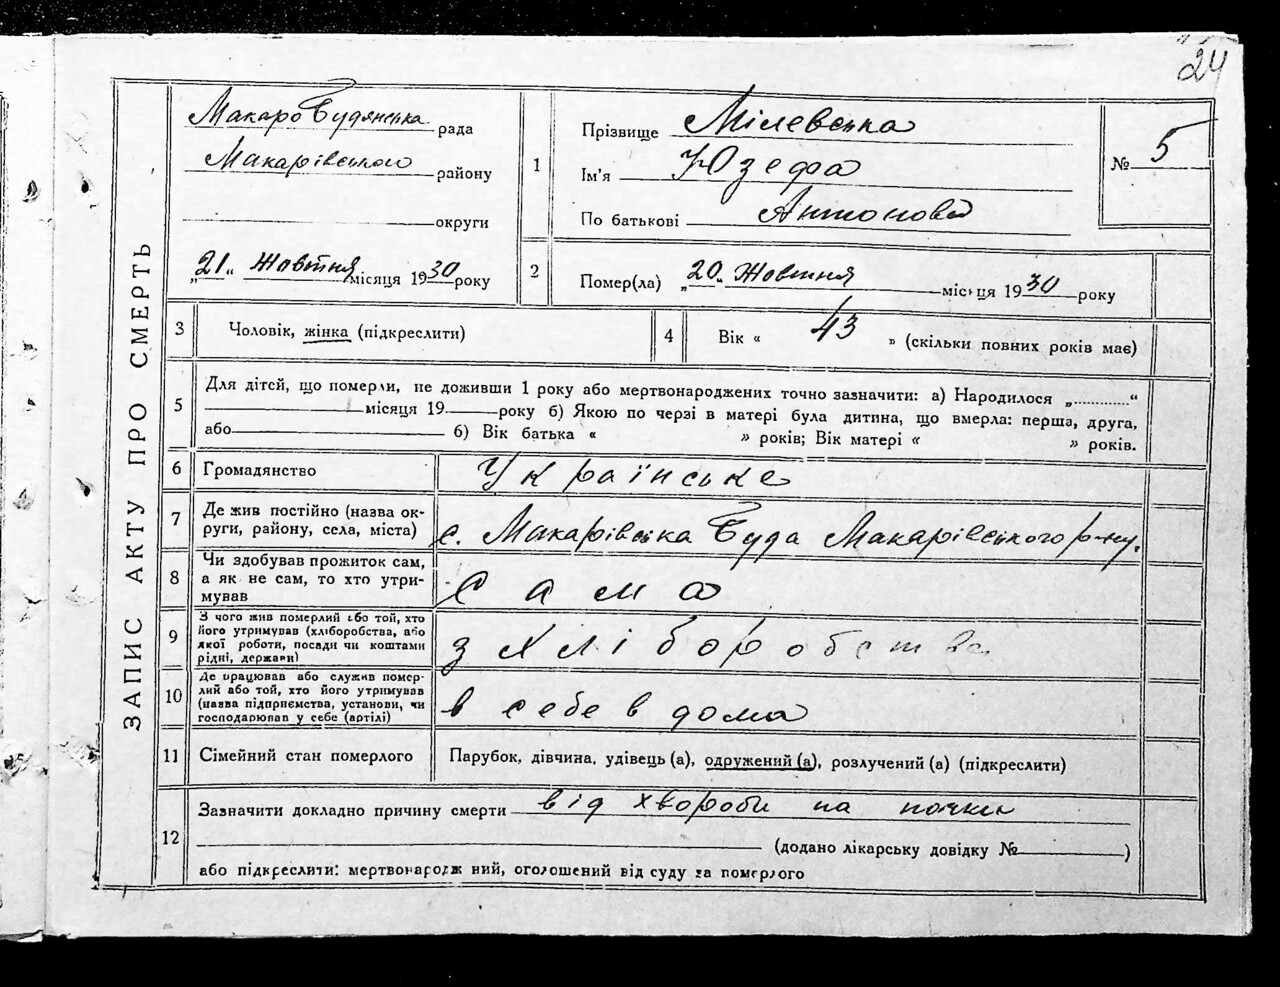 24
ЗАПИС АКТУ ПРО СМЕРТЬ
МакароБудянська рада
Макарівського району
округи
„21“ Жовтня місяця 1930 року
1
Прізвище Мілевська
Ім'я Юзефа
По батькові Антонова
№ 5
2
Помер(ла) „20“ Жовтня місяця 1930 року
3
Чоловік, жінка (підкреслити)
4
Вік « 43 » (скільки повних років має)
5
Для дітей, що померли, не доживши 1 року або мертвонароджених точно зазначити: а) Народилося „............“
місяця 19 року б) Якою по черзі в матері була дитина, що вмерла: перша, друга,
або б) Вік батька « » років; Вік матері « » років.
6
Громадянство
Українське
7
Де жив постійно (назва ок-
руги, району, села, міста)
с. Макарівська Буда Макарівського р-ну.
8
Чи здобував прожиток сам,
а як не сам, то хто утри-
мував
Сама
9
З чого жив померлий або той, хто
його утримував (хліборобства, або
якої роботи, посади чи коштами
рідні, держави)
з хліборобства
10
Де працював або служив помер-
лий або той, хто його утримував
(назва підприємства, установи, чи
господарював у себе (артілі)
в себе в дома
11
Сімейний стан померлого
Парубок, дівчина, удівець (а), одружений (а), розлучений (а) (підкреслити)
12
Зазначити докладно причину смерти від хвороби на почки
(додано лікарську довідку № )
або підкреслити: мертвонародж ний, оголошений від суду за померлого